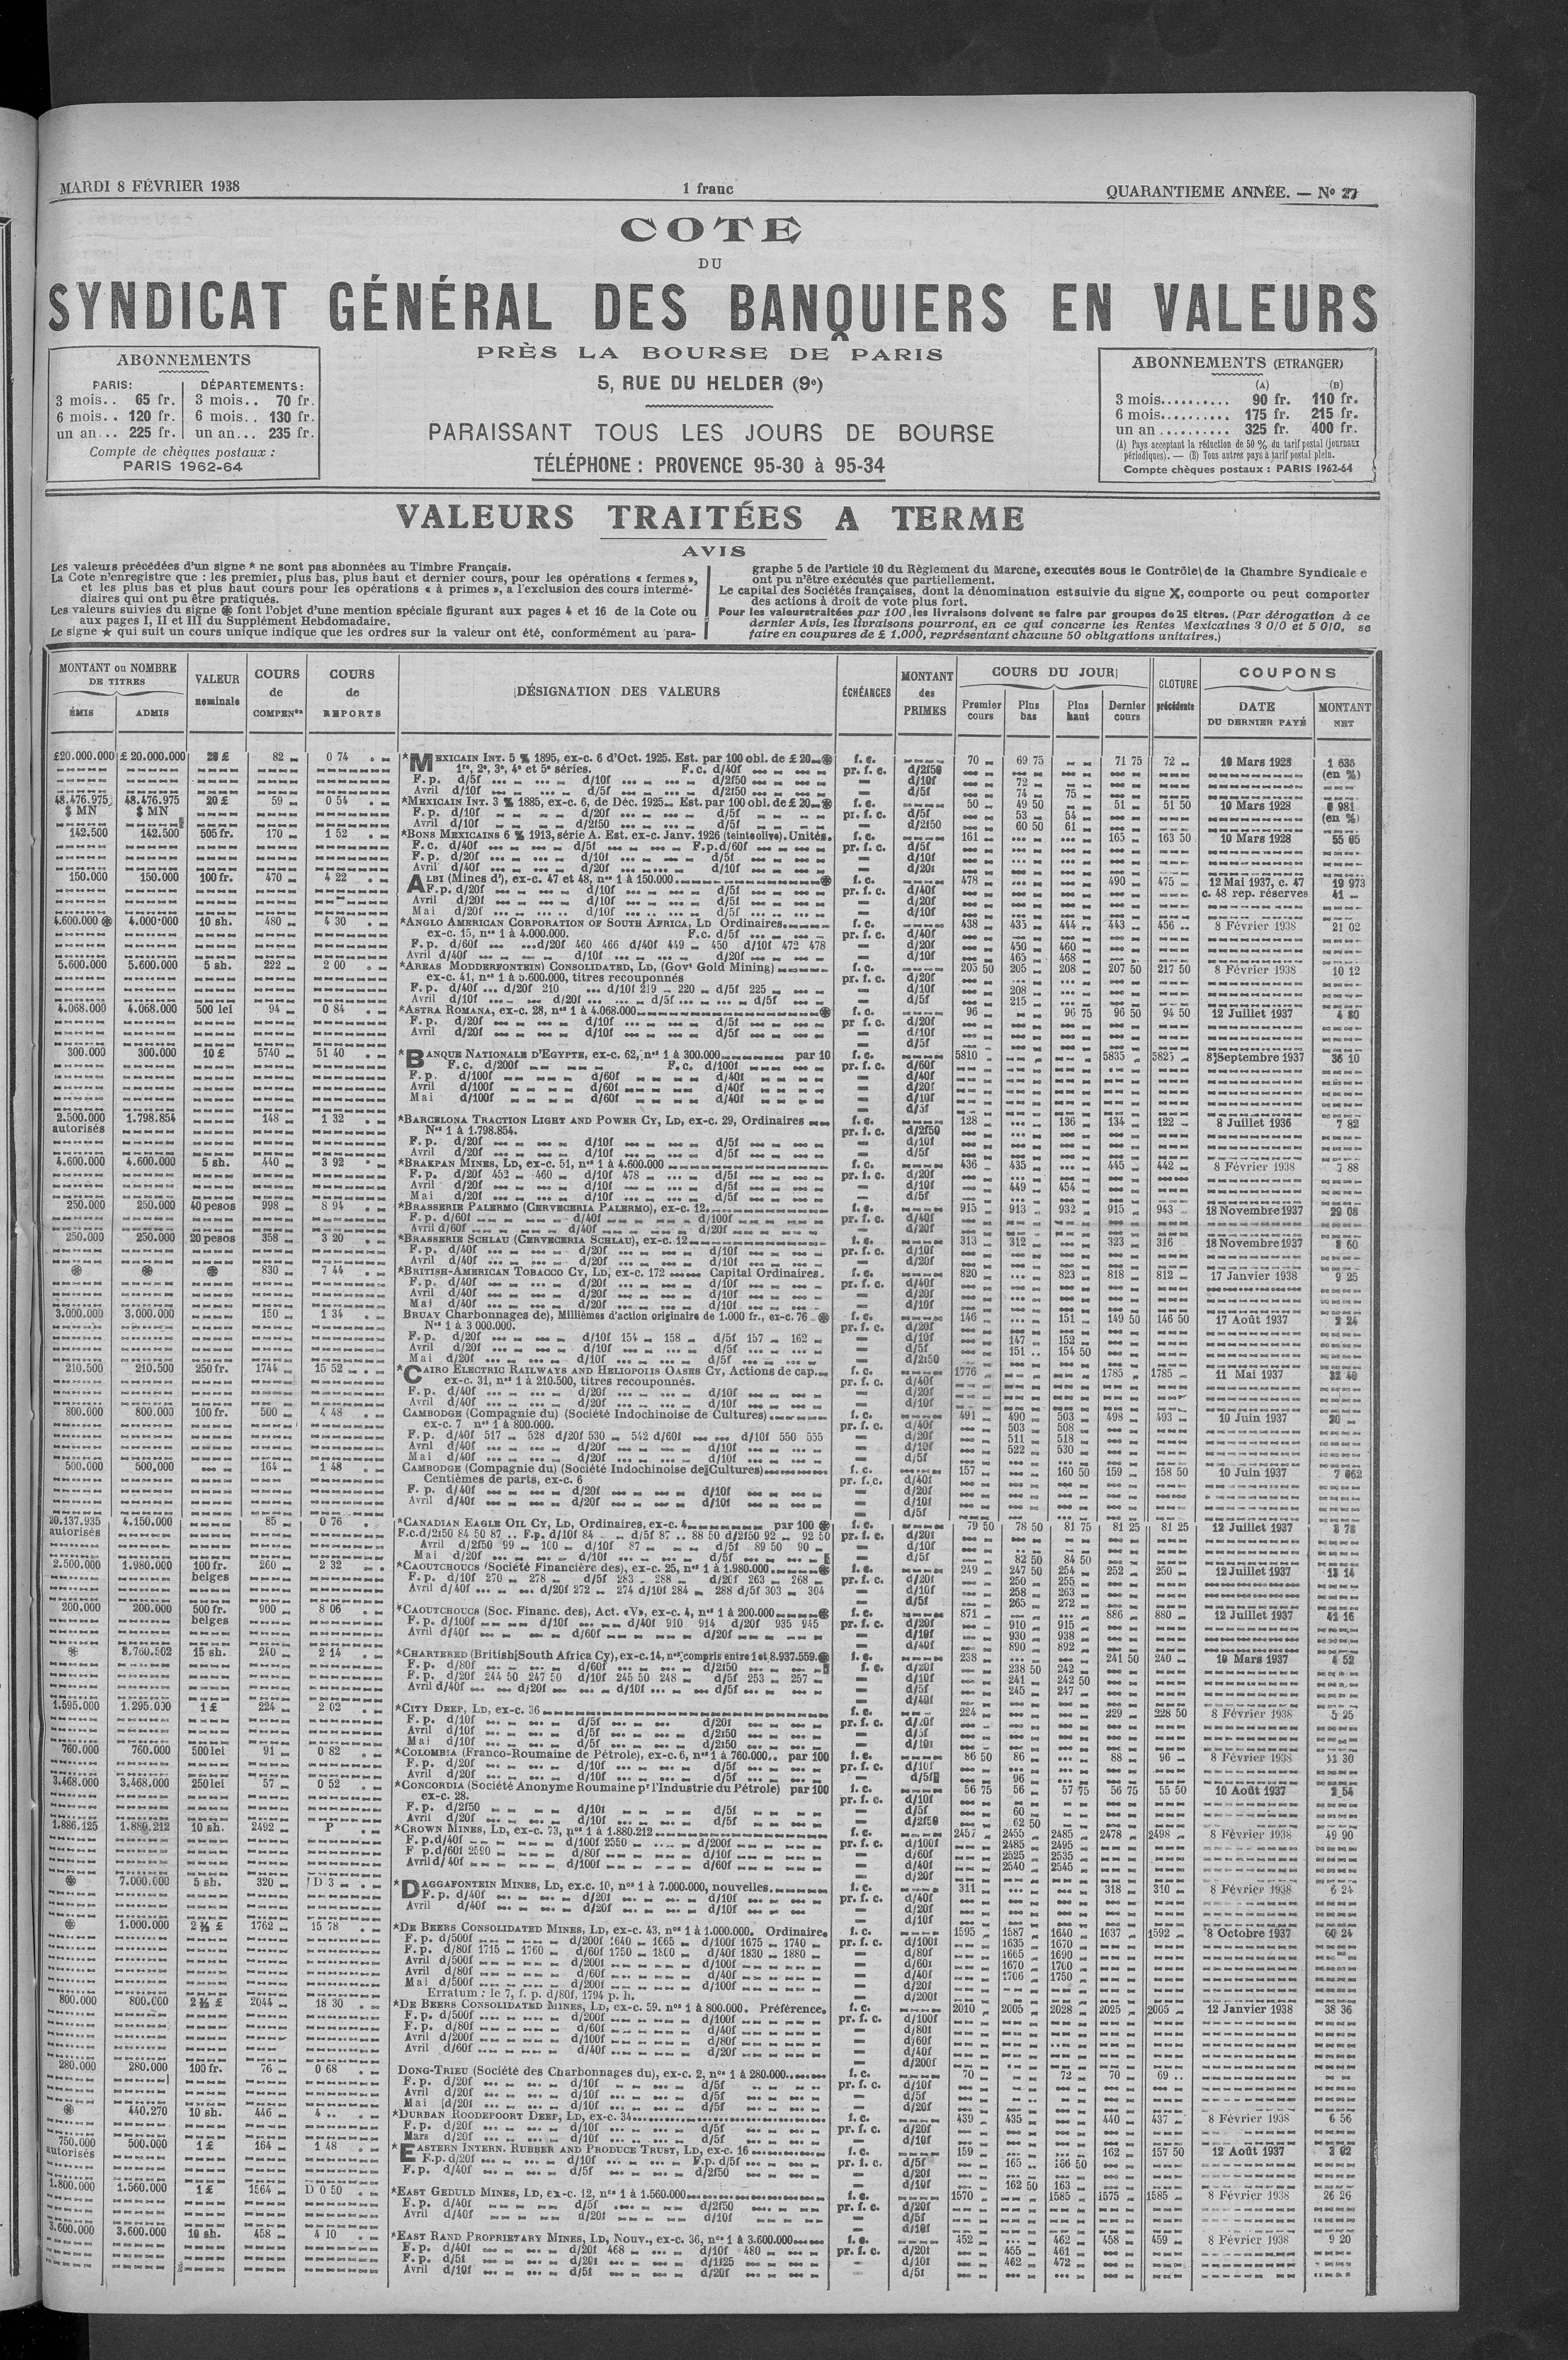 MARDI 8 FÉVRIER 1938
1 franc
QUARANTIEME ANNÉE. — No 27
COTE
DU
SYNDICAT GÉNÉRAL DES BANQUIERS EN VALEURS
PRÈS LA BOURSE DE PARIS
5, RUE DU HELDER (9e)
PARAISSANT TOUS LES JOURS DE BOURSE
TÉLÉPHONE : PROVENCE 95-30 à 95-34
ABONNEMENTS
PARIS: DÉPARTEMENTS:
3 mois.. 65 fr. 3 mois.. 70 fr.
6 mois.. 120 fr. 6 mois.. 130 fr.
un an... 225 fr. un an... 235 fr.
Compte de chèques postaux :
PARIS 1962-64
ABONNEMENTS (ETRANGER)
(A) (B)
3 mois.......... 90 fr. 110 fr.
6 mois.......... 175 fr. 215 fr.
un an .......... 325 fr. 400 fr.
(A) Pays acceptant la réduction de 50 % du tarif postal (journaux
périodiques). — (B) Tous autres pays à tarif postal plein.
Compte chèques postaux : PARIS 1962-64
VALEURS TRAITÉES A TERME
AVIS
Les valeurs précédées d'un signe * ne sont pas abonnées au Timbre Français.
La Cote n'enregistre que : les premier, plus bas, plus haut et dernier cours, pour les opérations « fermes »,
et les plus bas et plus haut cours pour les opérations « à primes », a l'exclusion des cours intermé-
diaires qui ont pu être pratiqués.
Les valeurs suivies du signe ⊛ font l'objet d'une mention spéciale figurant aux pages 4 et 16 de la Cote ou
aux pages I, II et III du Supplément Hebdomadaire.
Le signe ★ qui suit un cours unique indique que les ordres sur la valeur ont été, conformément au para-
graphe 5 de l'article 10 du Règlement du Marche, executés sous le Contrôle de la Chambre Syndicale e
ont pu n'être exécutés que partiellement.
Le capital des Sociétés françaises, dont la dénomination est suivie du signe X, comporte ou peut comporter
des actions à droit de vote plus fort.
Pour les valeurs traitées par 100, les livraisons doivent se faire par groupes de 25 titres. (Par dérogation à ce
dernier Avis, les livraisons pourront, en ce qui concerne les Rentes Mexicaines 3 0/0 et 5 0/0, se
faire en coupures de £ 1.000, représentant chacune 50 obligations unitaires.)
MONTANT ou NOMBRE DE TITRES
ÉMIS ADMIS
VALEUR nominale
COURS de COMPENon
COURS de REPORTS
DÉSIGNATION DES VALEURS
ÉCHÉANCES
MONTANT des PRIMES
COURS DU JOUR
Premier cours Plus bas Plus haut Dernier cours
CLOTURE précédente
COUPONS
DATE DU DERNIER PAYÉ MONTANT NET
£20.000.000 £ 20.000.000 20 £ 82 0 74 *MEXICAIN INT. 5 % 1895, ex-c. 6 d'Oct. 1925. Est. par 100 obl. de £ 20 ⊛ f. c. 70 69 75 71 75 72 10 Mars 1928 1 636
1re, 2e, 3e, 4e et 5e séries. F.c. d/40f pr. f. c. d/2f50 (en %)
F.p. d/5f d/10f d/2f50 d/10f 72
Avril d/10f d/5f d/2f50 d/5f 74 75
48.476.975 48.476.975 20 £ 59 0 54 *MEXICAIN INT. 3 % 1885, ex-c. 6, de Déc. 1925 Est. par 100 obl. de £ 20 ⊛ f. c. 50 49 50 51 51 50 10 Mars 1928 0 981
$ MN $ MN F.p. d/10f d/20f d/5f pr. f. c. d/5f 53 54 (en %)
Avril d/10f d/2f50 d/5f d/2f50 60 50 61
142.500 142.500 505 fr. 170 1 52 *BONS MEXICAINS 6 % 1913, série A. Est. ex-c. Janv. 1926 (teinte olive). Unités. f. c. 161 165 163 50 10 Mars 1928 55 05
F.c. d/40f d/5f F.p.d/60f pr. f. c. d/5f
F.p. d/20f d/10f d/5f d/10f
Avril d/40f d/20f d/10f d/20f
150.000 150.000 100 fr. 470 4 22 ALBI (Mines d'), ex-c. 47 et 48, nos 1 à 150.000 ⊛ f. c. 478 490 475 12 Mai 1937, c. 47 19 973
F.p. d/20f d/10f d/5f pr. f. c. d/40f c. 48 rep. réserves 41
Avril d/20f d/10f d/5f d/20f
Mai d/20f d/10f d/5f d/10f
4.600.000 ⊛ 4.000.000 10 sh. 480 4 30 *ANGLO AMERICAN CORPORATION OF SOUTH AFRICA, LD Ordinaires f. c. 438 435 444 443 456 8 Février 1938 21 02
ex-c. 15, nos 1 à 4.000.000. F.c. d/5f pr. f. c. d/40f
F.p. d/60f d/20f 460 466 d/40f 449 450 d/10f 472 478 d/20f 450 460
Avril d/40f d/10f d/20f d/10f 465 468
5.600.000 5.600.000 5 sh. 222 2 00 *AREAS MODDERFONTEIN) CONSOLIDATED, LD, (Govt Gold Mining) f. c. 205 50 205 208 207 50 217 50 8 Février 1938 10 12
ex-c. 41, nos 1 à 5.600.000, titres recouponnés pr. f. c. d/20f
F.p. d/40f d/20f 210 d/10f 219 220 d/5f 225 d/10f 208
Avril d/10f d/20f d/5f d/5f d/5f 215
4.068.000 4.068.000 500 lei 94 0 84 *ASTRA ROMANA, ex-c. 28, nos 1 à 4.068.000 ⊛ f. c. 96 96 75 96 50 94 50 12 Juillet 1937 4 80
F.p. d/20f d/10f d/5f pr f. c. d/20f
Avril d/20f d/10f d/5f d/10f
d/5f
300.000 300.000 10 £ 5740 51 40 *BANQUE NATIONALE D'EGYPTE, ex-c. 62, nos 1 à 300.000 par 10 f. c. 5810 5835 5825 8 Septembre 1937 36 10
F.c. d/200f F.c. d/100f pr. f. c. d/60f
F.p. d/100f d/60f d/40f d/40f
Avril d/100f d/60f d/40f d/20f
Mai d/100f d/60f d/40f d/10f
d/5f
2.500.000 1.798.854 148 1 32 *BARCELONA TRACTION LIGHT AND POWER CY, LD, ex-c. 29, Ordinaires f. c. 128 136 134 122 8 Juillet 1936 7 82
autorisés Nos 1 à 1.798.854. pr. f. c. d/2f50
F.p. d/20f d/10f d/5f d/10f
Avril d/20f d/10f d/5f d/5f
4.600.000 4.600.000 5 sh. 440 3 92 *BRAKPAN MINES, LD, ex-c. 51, nos 1 à 4.600.000 f. c. 436 435 445 442 8 Février 1938 7 88
F.p. d/20f 452 460 d/10f 478 d/5f pr. f. c. d/20f
Avril d/20f d/10f d/5f d/10f 449 454
Mai d/20f d/10f d/5f d/5f
250.000 250.000 40 pesos 998 8 94 *BRASSERIE PALERMO (CERVECERIA PALERMO), ex-c. 12. f. c. 915 913 932 915 943 18 Novembre 1937 29 08
F.p. d/60f d/40f d/100f pr. f. c. d/40f
Avril d/60f d/40f d/20f d/20f
250.000 250.000 20 pesos 358 3 20 *BRASSERIE SCHLAU (CERVECERIA SCHLAU), ex-c. 12 f. c. 313 312 323 316 18 Novembre 1937 8 60
F.p. d/40f d/20f d/10f pr. f. c. d/10f
Avril d/40f d/20f d/10f d/20f
⊛ ⊛ ⊛ 830 7 44 *BRITISH-AMERICAN TOBACCO CY, LD, ex-c. 172 Capital Ordinaires. f. c. 820 823 818 812 17 Janvier 1938 9 25
F.p. d/40f d/20f d/10f pr. f. c. d/40f
Avril d/40f d/20f d/10f d/20f
Mai d/40f d/20f d/10f d/10f
3.000.000 3.000.000 150 1 34 BRUAY Charbonnages de), Millièmes d'action originaire de 1.000 fr., ex-c. 76 ⊛ f. c. 146 151 149 50 146 50 17 Août 1937 2 24
Nos 1 à 3 000.000. pr. f. c. d/20f
F.p. d/20f d/10f 154 158 d/5f 157 162 d/10f 147 152
Avril d/20f d/10f d/5f d/5f 151 154 50
Mai d/20f d/10f d/5f d/2f50
210.500 210.500 250 fr. 1744 15 52 *CAIRO ELECTRIC RAILWAYS AND HELIOPOLIS OASES CY, Actions de cap. f. c. 1776 1785 1785 11 Mai 1937 32 40
ex-c. 31, nos 1 à 210.500, titres recouponnés. pr. f. c. d/40f
F.p. d/40f d/20f d/10f d/20f
Avril d/40f d/20f d/10f d/10f
800.000 800.000 100 fr. 500 4 48 CAMBODGE (Compagnie du) (Société Indochinoise de Cultures) f. c. 491 490 503 498 493 10 Juin 1937 20
ex-c. 7 nos 1 à 800.000. pr. f. c. d/40f 503 508
F.p. d/40f 517 528 d/20f 530 542 d/60f d/10f 550 555 d/20f 511 518
Avril d/40f d/20f d/10f d/10f 522 530
Mai d/40f d/20f d/10f d/5f
500.000 500.000 164 1 48 CAMBODGE (Compagnie du) (Société Indochinoise de Cultures) f. c. 157 160 50 159 158 50 10 Juin 1937 7 662
Centièmes de parts, ex-c. 6 pr. f. c. d/40f
F. p. d/40f d/20f d/10f d/20f
Avril d/40f d/20f d/10f d/10f
d/5f
20.137.935 4.150.000 85 0 76 *CANADIAN EAGLE OIL CY, LD, Ordinaires, ex-c. 4 par 100 ⊛ f. c. 79 50 78 50 81 75 81 25 81 25 12 Juillet 1937 3 78
autorisés F.c.d/2f50 84 50 87 .. F.p. d/10f 84 d/5f 87 .. 88 50 d/2f50 92 92 50 pr. f. c. d/20f
Avril d/2f50 99 100 d/10f 87 d/5f 89 50 90 d/10f
Mai d/20f d/10f d/5f d/5f 82 50 84 50
2.500.000 1.980.000 100 fr. 260 2 32 *CAOUTCHOUCS (Société Financière des), ex-c. 25, nos 1 à 1.980.000 ⊛ f. c. 249 247 50 254 252 250 12 Juillet 1937 13 14
belges F.p. d/10f 270 278 d/5f 283 288 d/20f 263 268 pr. f. c. d/20f 250 255
Avril d/40f d/20f 272 274 d/10f 284 288 d/5f 303 304 d/10f 258 263
d/5f 265 272
200.000 200.000 500 fr. 900 8 06 *CAOUTCHOUCS (Soc. Financ. des), Act. «V», ex-c. 4, nos 1 à 200.000 ⊛ f. c. 871 886 880 12 Juillet 1937 41 16
belges F.p. d/100f d/40f 910 914 d/20f 935 945 pr. f. c. d/20f 910 915
Avril d/40f d/60f d/20f d/10f 930 938
d/40f 890 892
⊛ 8.760.502 15 sh. 240 2 14 *CHARTERED (British South Africa Cy), ex-c. 14, nos compris entre 1 et 8.937.559. ⊛ f. c. 238 241 50 240 10 Mars 1937 4 52
F.p. d/80f d/60f d/2f50 f. c. d/20f 238 50 242
F.p. d/20f 244 50 247 50 d/10f 245 50 248 d/5f 253 257 d/10f 241 242 50
Avril d/40f d/20f d/10f d/5f d/5f 245 247
d/40f
1.595.000 1.295.000 1 £ 224 2 02 *CITY DEEP, LD, ex-c. 36 f. c. 224 229 228 50 8 Février 1938 5 25
F.p. d/10f d/5f d/20f pr. f. c. d/20f
Avril d/10f d/5f d/2f50 d/5f
Mai d/10f d/5f d/2f50 d/10f
760.000 760.000 500 lei 91 0 82 *COLOMBIA (Franco-Roumaine de Pétrole), ex-c. 6, nos 1 à 760.000.. par 100 f. c. 86 50 86 88 96 8 Février 1938 11 30
F.p. d/20f d/10f d/5f pr. f. c. d/10f
Avril d/20f d/10f d/5f d/5f 96
3.468.000 3.468.000 250 lei 57 0 52 *CONCORDIA (Société Anonyme Roumaine pr l'Industrie du Pétrole) par 100 f. c. 56 75 56 57 75 56 75 55 50 10 Août 1937 2 54
ex-c. 28. pr. f. c. d/10f
F.p. d/2f50 d/10f d/5f d/5f 60
Avril d/20f d/10f d/5f d/2f50 62 50
1.886.125 1.880.212 10 sh. 2492 P *CROWN MINES, LD, ex-c. 73, nos 1 à 1.880.212 f. c. 2457 2455 2485 2478 2498 8 Février 1938 49 90
F.p.d/40f d/100f 2550 d/200f pr. f. c. d/100f 2485 2495
F p.d/60f 2590 d/80f d/10f d/60f 2525 2535
Avril d/40f d/100f d/60f d/40f 2540 2545
d/20f
⊛ 7.000.000 5 sh. 320 D 3 *DAGGAFONTEIN MINES, LD, ex.c. 10, nos 1 à 7.000.000, nouvelles. f. c. 311 318 310 8 Février 1938 6 24
F.p. d/40f d/20f d/10f pr. f. c. d/40f
Avril d/40f d/20f d/10f d/20f
d/10f
⊛ 1.000.000 2 ½ £ 1762 15 78 *DE BEERS CONSOLIDATED MINES, LD, ex-c. 43, nos 1 à 1.000.000. Ordinaire. f. c. 1595 1587 1640 1637 1592 8 Octobre 1937 60 24
F.p. d/500f d/200f 1640 1665 d/100f 1675 1740 pr. f. c. d/100f 1635 1670
F.p. d/80f 1715 1760 d/60f 1750 1800 d/40f 1830 1880 d/80f 1665 1690
Avril d/500f d/200f d/100f d/60f 1670 1700
Avril d/80f d/60f d/40f d/40f 1706 1750
Mai d/500f d/200f d/100f d/20f
Erratum : le 7, f. p. d/80f, 1794 p. h. d/200f
800.000 800.000 2 ½ £ 2044 18 30 *DE BEERS CONSOLIDATED MINES, LD, ex-c. 59. nos 1 à 800.000. Préférence. f. c. 2010 2005 2028 2025 2005 12 Janvier 1938 38 36
F.p. d/500f d/200f d/100f pr. f. c. d/100f
F.p. d/80f d/60f d/40f d/80f
Avril d/200f d/100f d/80f d/60f
Avril d/60f d/40f d/20f d/40f
d/200f
280.000 280.000 100 fr. 76 0 68 DONG-TRIEU (Société des Charbonnages du), ex-c. 2, nos 1 à 280.000. f. c. 70 72 70 69
F.p. d/20f d/10f d/5f pr. f. c. d/10f
Avril d/20f d/10f d/5f d/5f
Mai d/20f d/10f d/5f d/20f
⊛ 440.270 10 sh. 446 4 .. *DURBAN ROODEPOORT DEEP, LD, ex-c. 34 f. c. 439 435 440 437 8 Février 1938 6 56
F.p. d/20f d/10f d/5f pr. f. c. d/20f
Mars d/20f d/10f d/5f d/10f
750.000 500.000 1 £ 164 1 48 *EASTERN INTERN. RUBBER AND PRODUCE TRUST, LD, ex-c. 16 f. c. 159 162 157 50 12 Août 1937 3 02
autorisés F.p. d/20f d/10f F.p. d/5f pr. f. c. d/5f 165 166 50
F.p. d/40f d/5f d/2f50 d/20f
d/10f 162 50 163
1.800.000 1.560.000 1 £ 1564 D 0 50 *EAST GEDULD MINES, LD, ex-c. 12, nos 1 à 1.560.000 f. c. 1570 1585 1575 1585 8 Février 1938 26 26
F.p. d/40f d/5f d/2f50 pr. f. c. d/20f
Avril d/40f d/20f d/10f d/5f
d/10f
3.600.000 3.600.000 10 sh. 458 4 10 *EAST RAND PROPRIETARY MINES, LD, Nouv., ex-c. 36, nos 1 à 3.600.000 f. c. 452 462 458 459 8 Février 1938 9 20
F.p. d/40f d/20f 468 d/10f 480 pr. f. c. d/20f 455 461
F.p. d/5f d/20f d/1f25 d/10f 462 472
Avril d/10f d/5f d/20f d/5f